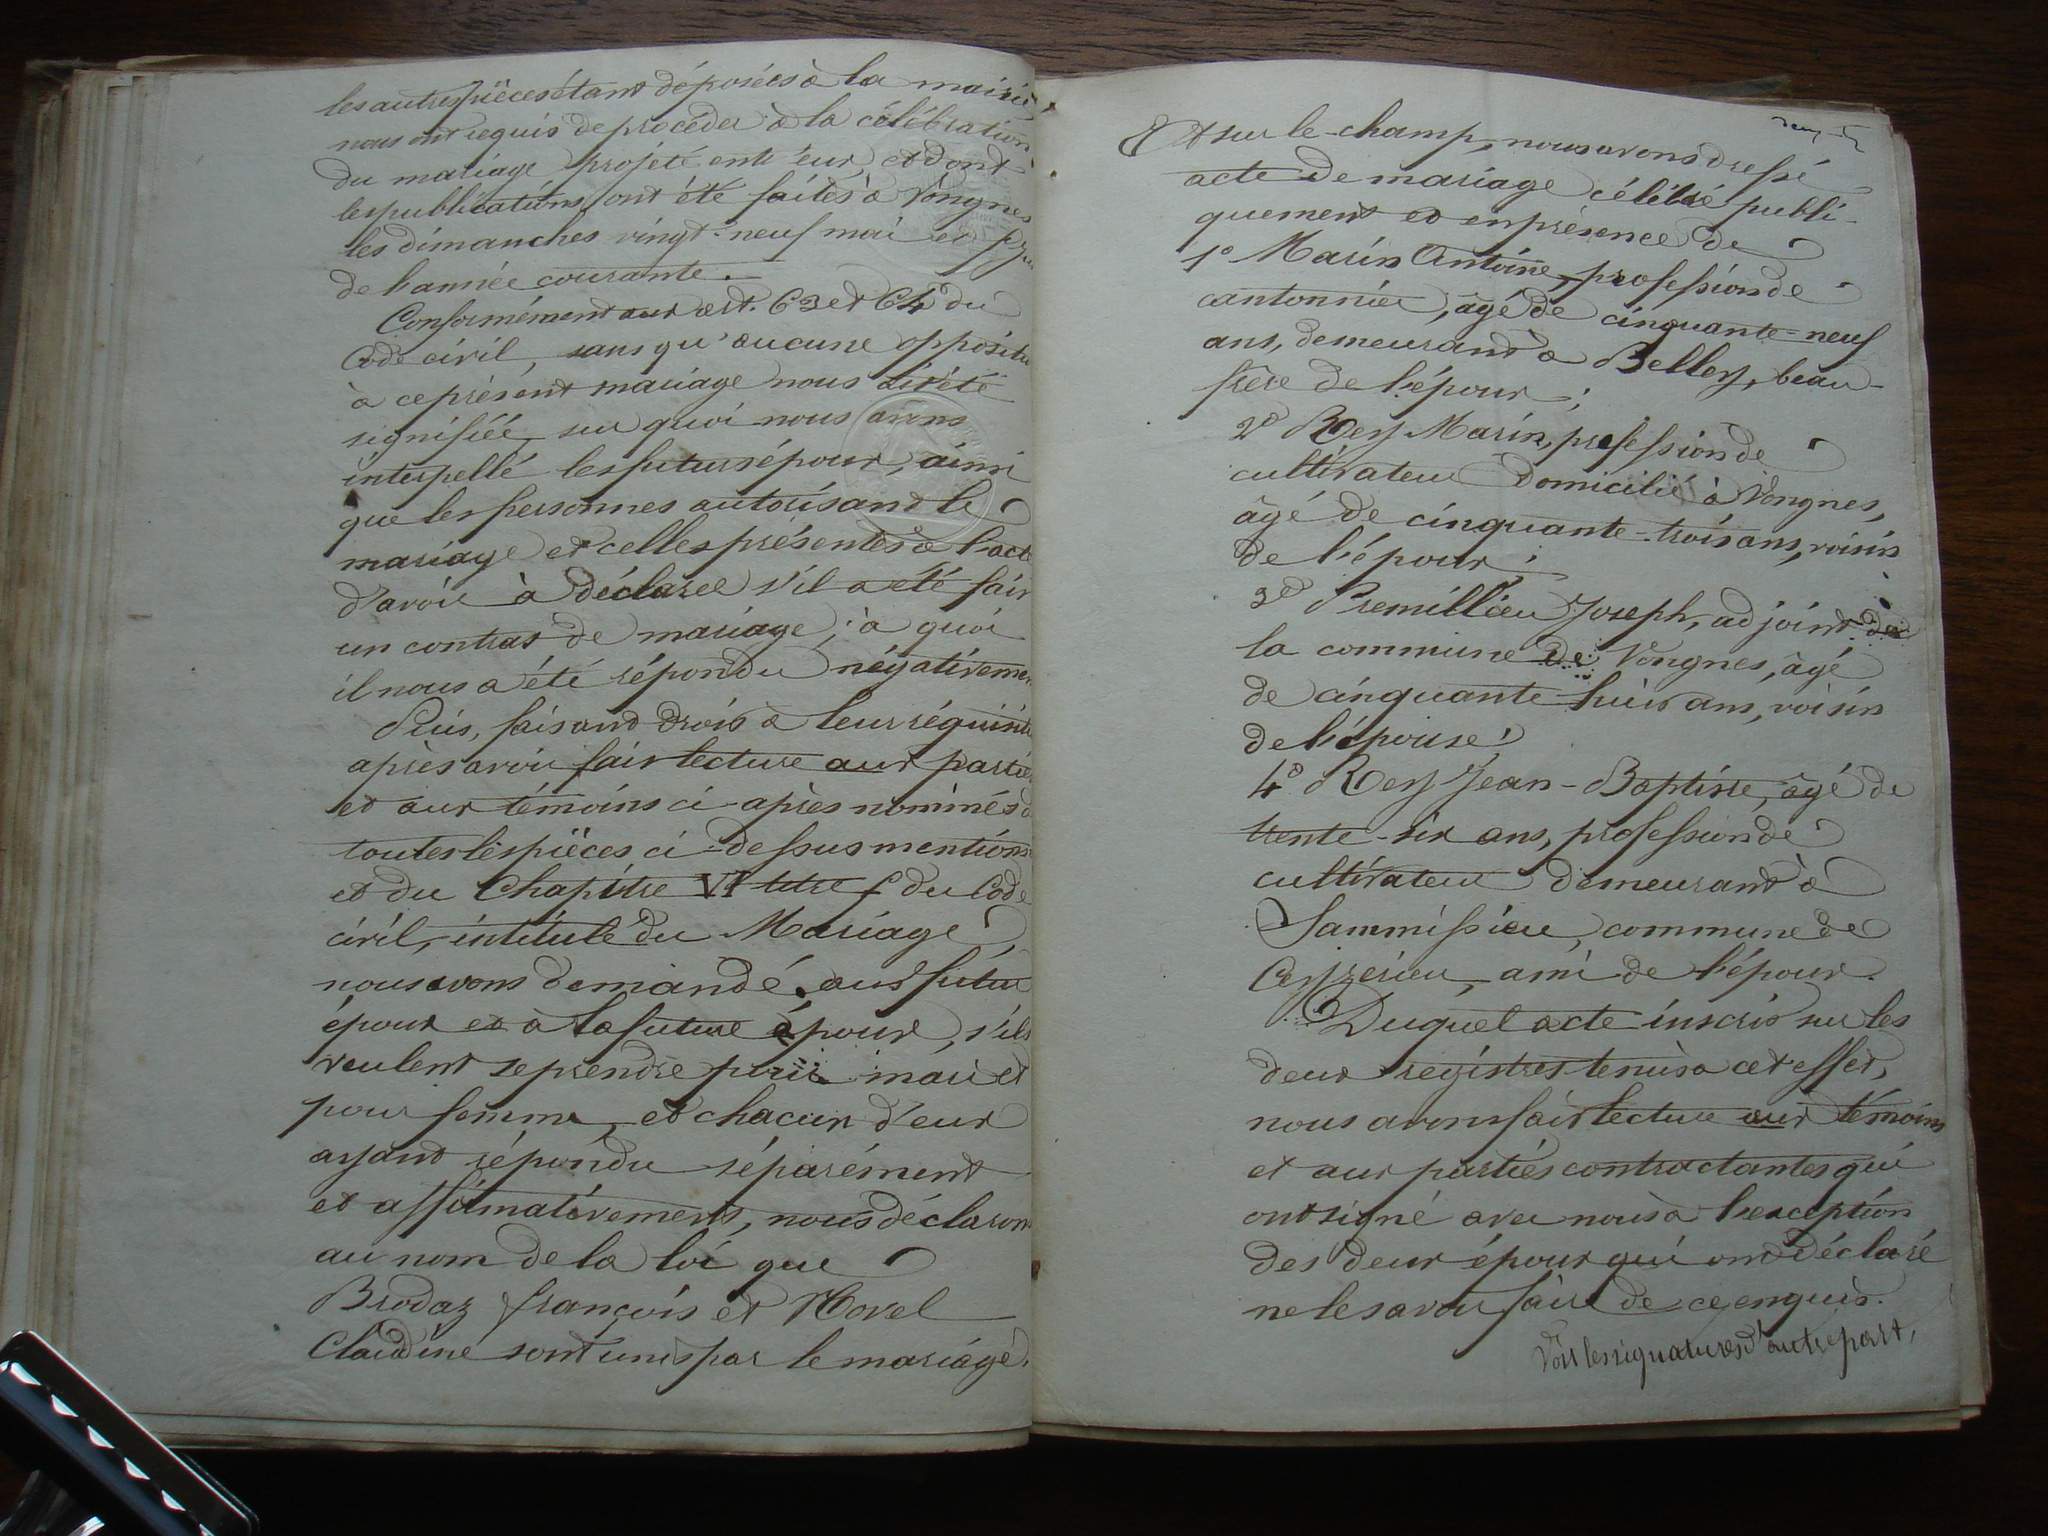 les autres pièces étant déposées à la mairie,
nous ont requis de procéder à la célébration
du mariage projeté entr'eux, et dont
les publications ont été faites à Vongnes
les dimanches vingt-neuf mai et
de l'année courante.
Conformément aux art. 63 et 64 du
Code civil, sans qu'aucune opposition
à ce présent mariage nous ait été
signifiée, sur quoi nous avons
interpellé les futurs époux, ainsi
que les personnes autorisant le
mariage et celles présentes à l'acte
d'avoir à déclarer s'il a été fait
un contrat de mariage; à quoi
il nous a été répondu négativement
Puis, faisant droit à leur réquisition
après avoir fait lecture aux parties
et aux témoins ci-après nommés de
toutes les pièces ci-dessus mentionn
et du Chapitre VI titre du Code
civil, intitulé du Mariage,
nous avons demandé au futur
époux et à la future épour, s'ils
veulent se prendre pour mari et
pour femme, et chacun d'eux
ayant répondu séparément
et affirmativement, nous déclarons
au nom de la loi que
Brodaz françois et Hovel
Claudine sont unis par le mariage.
Et sur le-champ, nous avons dressé
acte de mariage célébré publi-
quement et en présence de
1° Marin Antoine, profession de
cantonnier, âgé de cinquante-neuf
ans, demeurant à Belley, beau-
frère de l'époux;
2° Rey Marin, profession de
cultivateur domicilié à Vongnes,
âgé de cinquante-trois ans, voisin
de l'époux;
3° Premillieu Joseph, adjoint de
la commune de Vongnes, âgé
de cinquante-huit ans, voisin
de l'épouse;
4° Rey Jean-Baptiste, âgé de
trente-six ans, profession de
cultivateur demeurant à
Sammissieu, commune de
Ceyzérieu, ami de l'époux.
Duquel acte inscrit sur les
deux registres tenus à cet effet,
nous avons fait lecture aux témoins
et aux parties contractantes qui
ont signé avec nous à l'exception
des deux époux qui ont déclaré
ne le savoir faire de ce enquis.
Voir les signatures d'autre part,